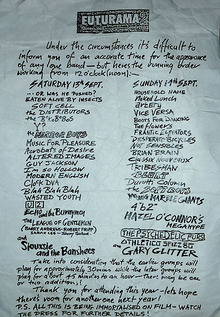 FUTURAMA 2
Under the circumstances it's difficult to
inform you of an accurate time for the appearance
of any one band - but here's the running order
working from 12 o'clock (noon):-
SATURDAY 13th SEPT.
... OR WAS HE PUSHED?
EATEN ALIVE BY INSECTS
SOFT CELL
the DISTRIBUTORS
the "B" BEBES
MUSIC FOR PLEASURE
Acrobats of Desire
ALTERED IMAGES
GUY JACKSON
I'm so HOLLOW
MODERN ENGLISH
CLOCK DVA
Blah Blah Blah
WASTED YOUTH
U2
Echo and the Bunnymen
the LEAGUE OF GENTLEMEN
Siouxsie and the Banshees
SUNDAY 14th SEPT.
HOUSEHOLD NAME
Naked Lunch
VICE VERSA
BOOTS FOR DANCING
the FLOWERS
FRANTIC ELEVATORS
DESPERATE BICYCLES
NOT SENSIBLES
BRIAN BRAIN
CLASSIX NOUVEAUX
TRIBESMAN
Durutti Column
YOUNG MARBLE GIANTS
4" be 2"
HAZEL O'CONNOR'S
MEGAHYPE
THE PSYCHEDELIC FURS
ATHLETICO SPIZZ 80
GARY GLITTER
Take into consideration that the earlier groups will
play for approximately 30 mins while the later groups will
play for about 45 mins to an hour. There may be one
or two additions!
Thank you for attending this year - lets hope
there's room for another one next year!
P.S. ALL THIS IS BEING IMMORTALISED ON FILM - WATCH
THE PRESS FOR FURTHER DETAILS!